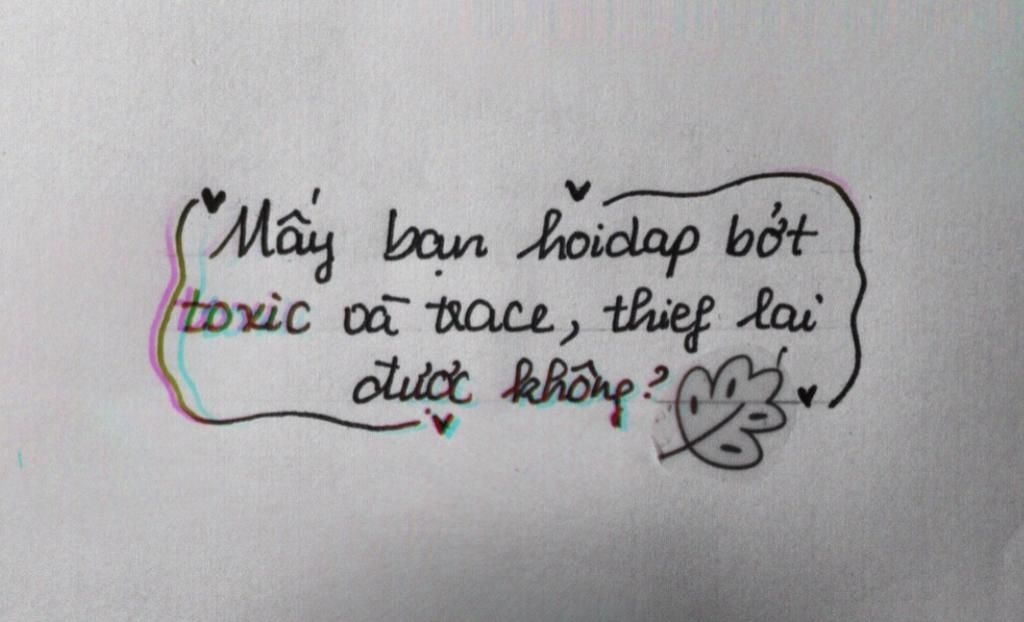 Mấy bạn hoidap bớt
toxic và trace, thief lai
được không?